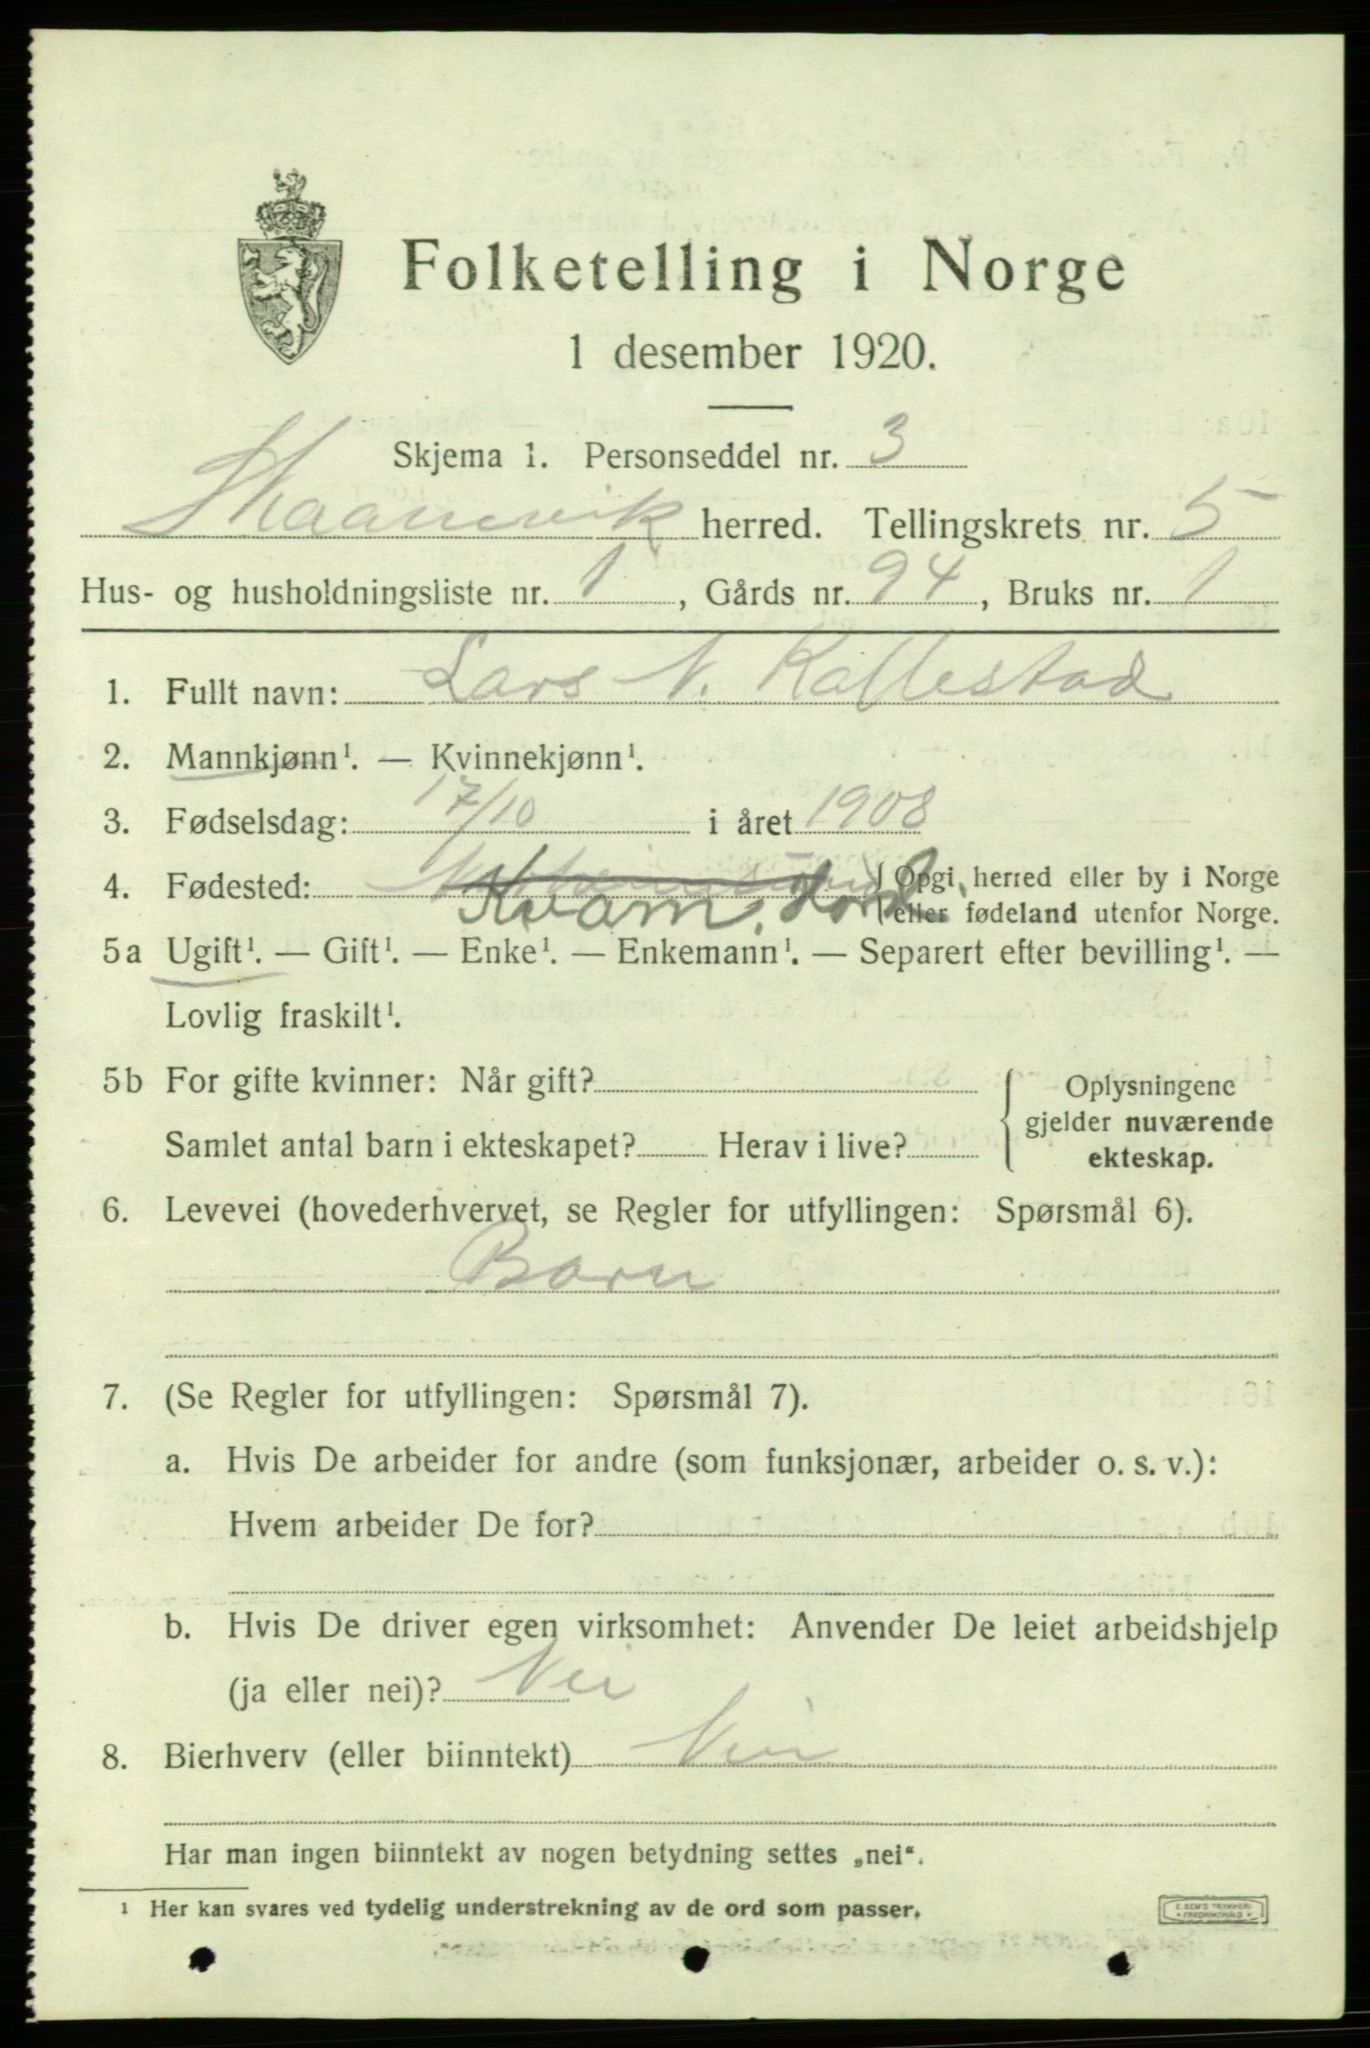 Folketelling i Norge
1 desember 1920.
Skjema 1. Personseddel nr. 3
Skaanevik herred. Tellingskrets nr. 5
Hus- og husholdningsliste nr. 1, Gårds nr. 94, Bruks nr. 1
1. Fullt navn: Lars N. Kallestad
2. Mannkjønn¹. — Kvinnekjønn¹.
3. Fødselsdag: 17/10 i året 1908
4. Fødested: Opgi herred eller by i Norge
Kvam, Hord. eller fødeland utenfor Norge.
5a Ugift¹. — Gift¹. — Enke¹. — Enkemann¹. — Separert efter bevilling¹. —
Lovlig fraskilt¹.
5b For gifte kvinner: Når gift? Oplysningene
gjelder nuværende
Samlet antal barn i ekteskapet? Herav i live? ekteskap.
6. Levevei (hovederhvervet, se Regler for utfyllingen: Spørsmål 6).
Barn
7. (Se Regler for utfyllingen: Spørsmål 7).
a. Hvis De arbeider for andre (som funksjonær, arbeider o. s. v.):
Hvem arbeider De for?
b. Hvis De driver egen virksomhet: Anvender De leiet arbeidshjelp
(ja eller nei)? Nei
8. Bierhverv (eller biinntekt) Nei
Har man ingen biinntekt av nogen betydning settes „nei“.
¹ Her kan svares ved tydelig understrekning av de ord som passer.
E. SEM'S TRYKKERI
FREDRIKSHALD